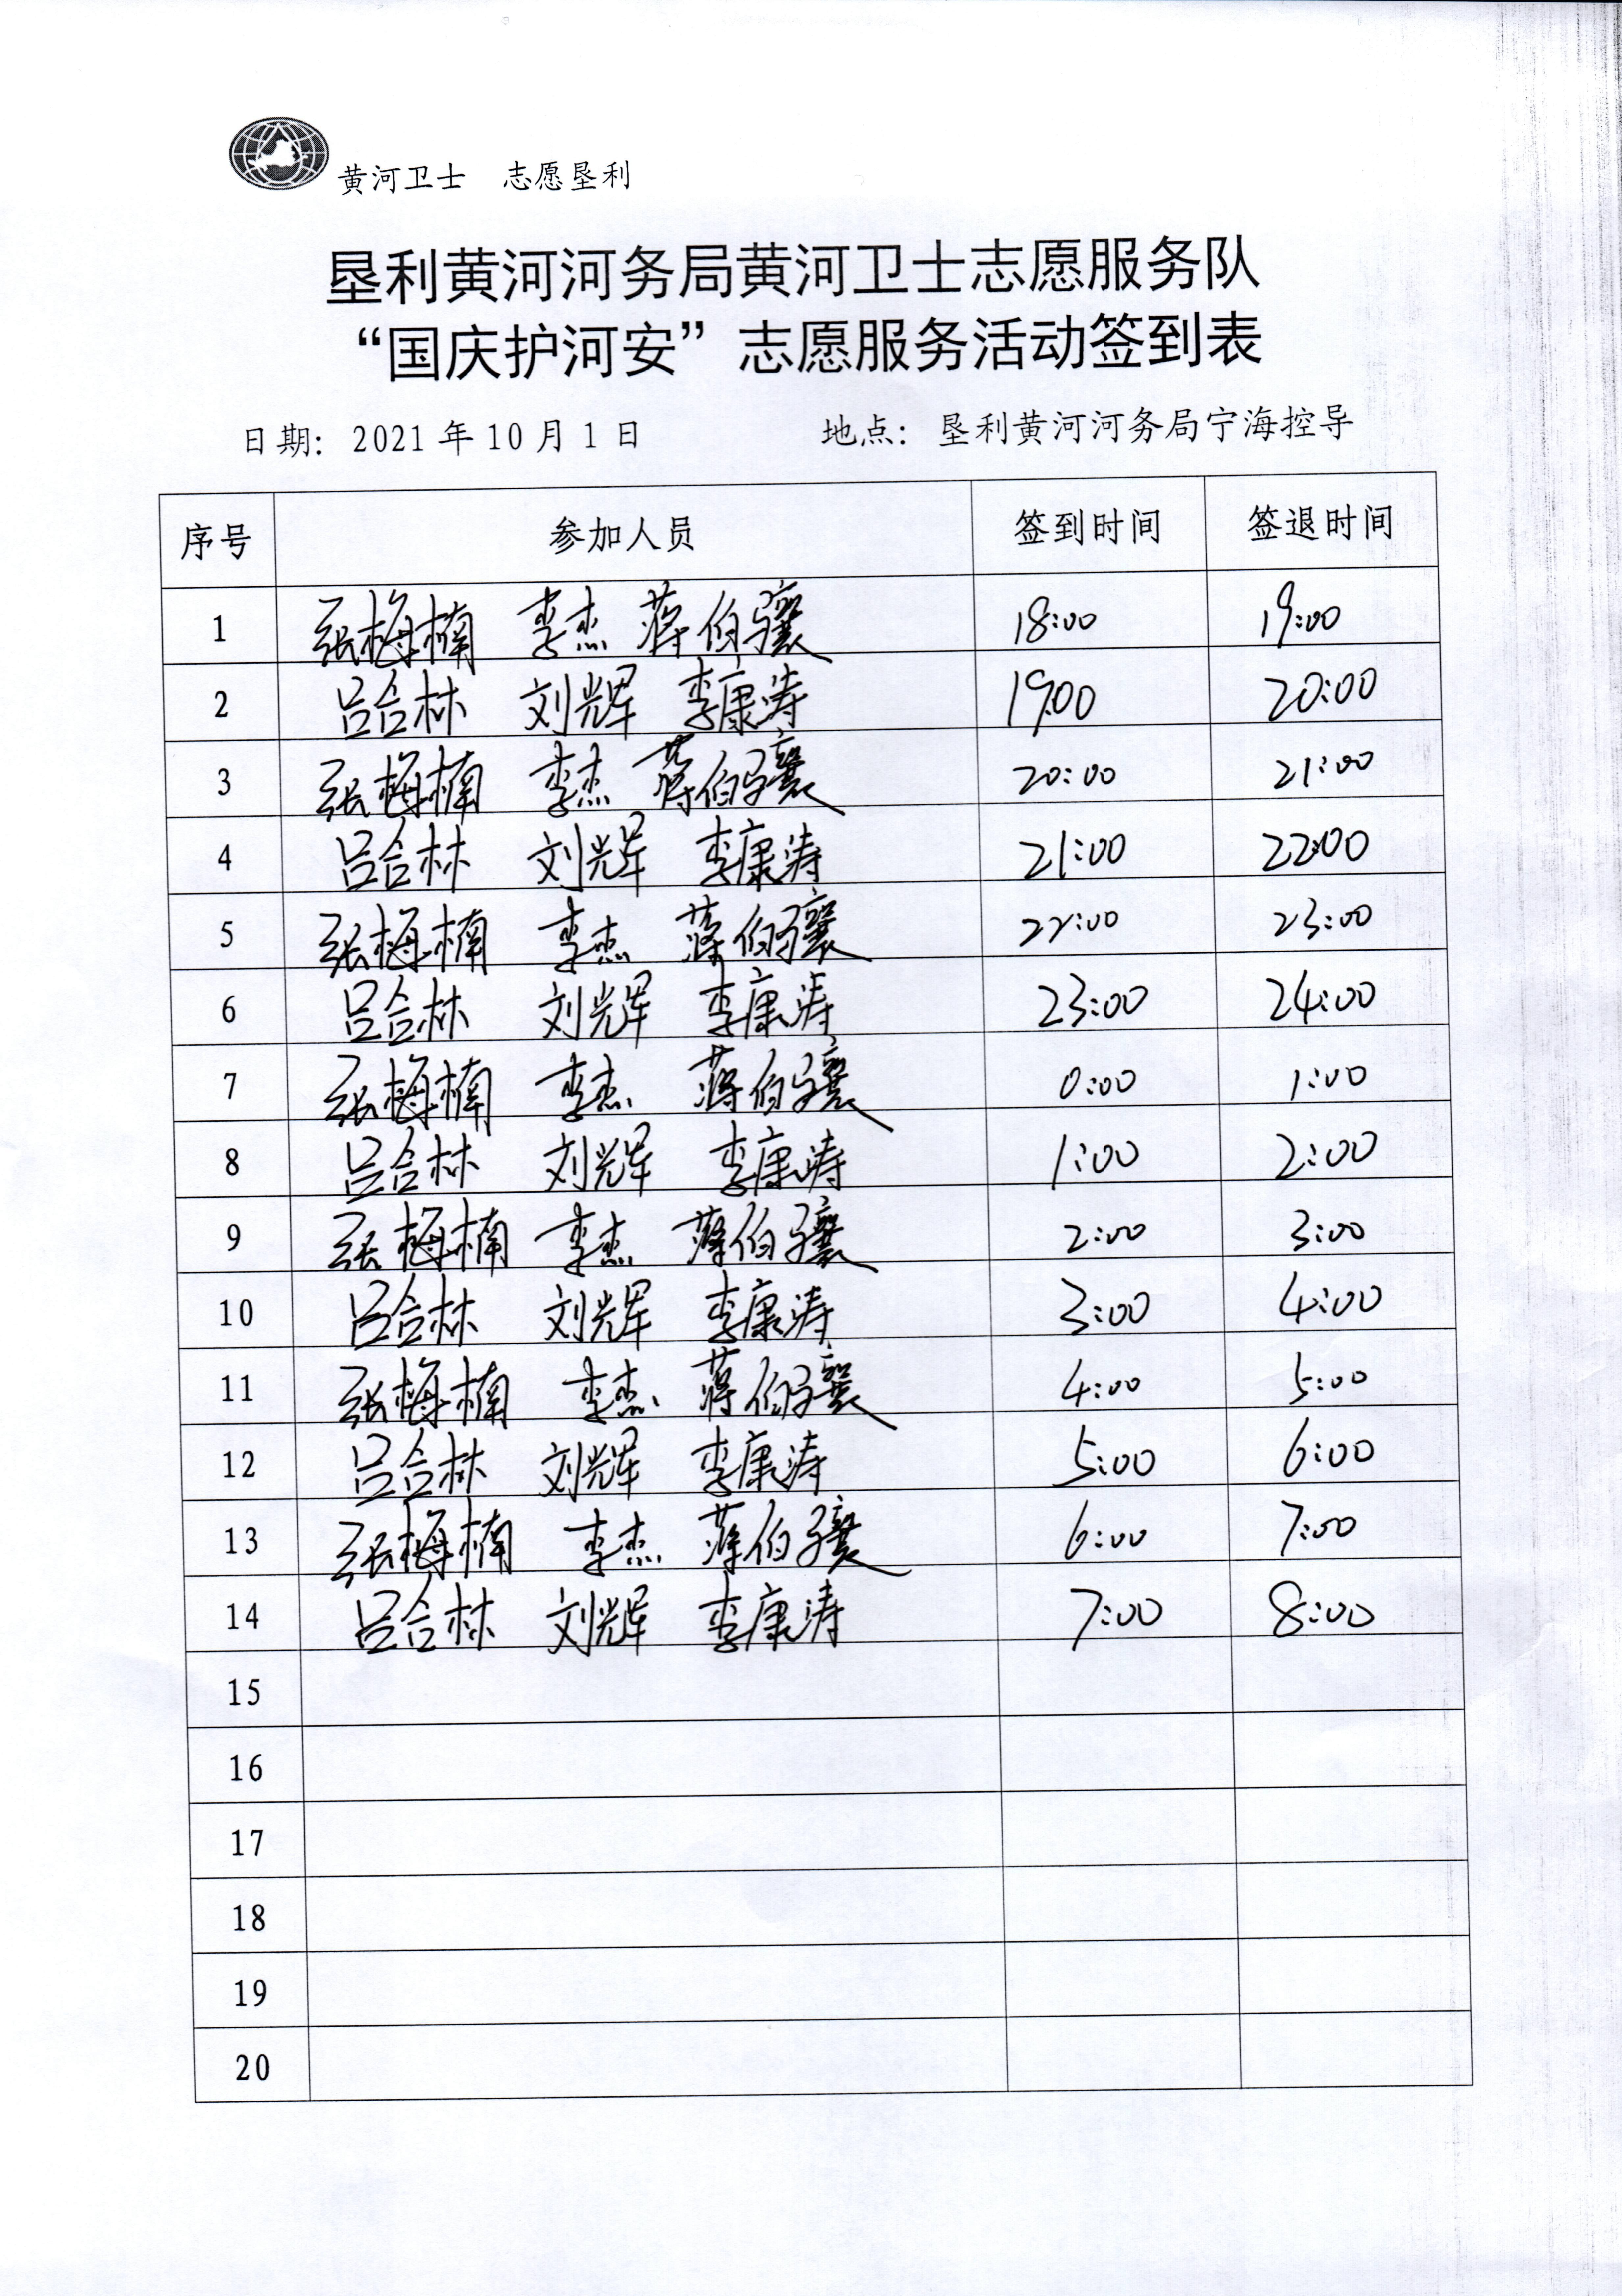 黄河卫士 志愿垦利
垦利黄河河务局黄河卫士志愿服务队
“国庆护河安”志愿服务活动签到表
日期：2021年10月1日 地点：垦利黄河河务局宁海控导
序号 参加人员 签到时间 签退时间
1 张梅楠 李杰 蒋伯骧 18:00 19:00
2 吕合林 刘辉 李康涛 19:00 20:00
3 张梅楠 李杰 蒋伯骧 20:00 21:00
4 吕合林 刘辉 李康涛 21:00 22:00
5 张梅楠 李杰 蒋伯骧 22:00 23:00
6 吕合林 刘辉 李康涛 23:00 24:00
7 张梅楠 李杰 蒋伯骧 0:00 1:00
8 吕合林 刘辉 李康涛 1:00 2:00
9 张梅楠 李杰 蒋伯骧 2:00 3:00
10 吕合林 刘辉 李康涛 3:00 4:00
11 张梅楠 李杰 蒋伯骧 4:00 5:00
12 吕合林 刘辉 李康涛 5:00 6:00
13 张梅楠 李杰 蒋伯骧 6:00 7:00
14 吕合林 刘辉 李康涛 7:00 8:00
15
16
17
18
19
20